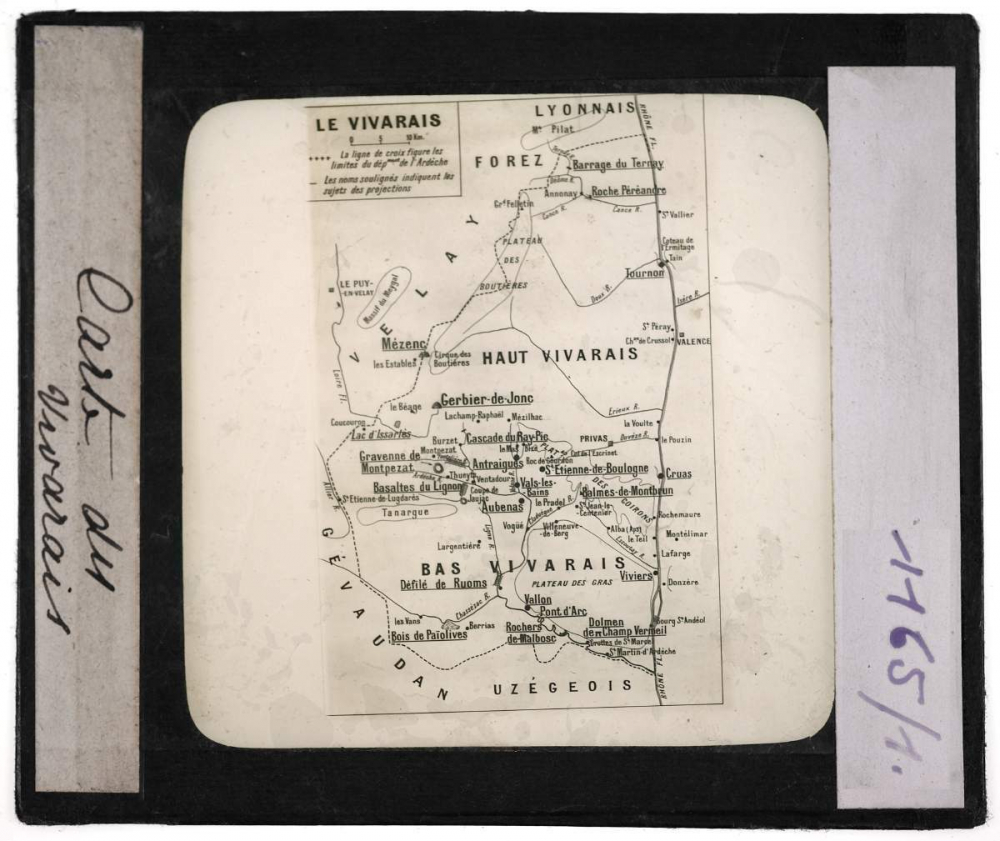 Carte du
Vivarais
LE VIVARAIS
0 5 10 Km.
La ligne de croix figure les
limites du dépᵗ de l'Ardèche
Les noms soulignés indiquent les
sujets des projections
LYONNAIS
RHÔNE FL.
Mᵗ Pilat
FOREZ
Barrage du Ternay
Deûme R.
Annonay
Roche Péréandre
Gᵈ Felletin
Cance R.
Cance R.
Sᵗ Vallier
PLATEAU
DES
BOUTIÈRES
Coteau de
l'Ermitage
Tain
Tournon
Doux R.
Isère R.
VELAY
LE PUY-
-EN-VELAY
Massif du Meygal
Sᵗ Péray
Chᵃᵘ de Crussol
VALENCE
Mézenc
les Estables
Cirque des
Boutières
HAUT VIVARAIS
Loire Fl.
Gerbier-de-Jonc
le Béage
Lachamp-Raphaël
Mézilhac
Erieux R.
la Voulte
Coucouron
Lac d'Issarlès
Burzet
Cascade du Ray-Pic
PRIVAS
Ouvèze R.
le Pouzin
Gravenne de
Montpezat
Montpezat
Antraigues
Roc de Gourdon
Col de l'Escrinet
Sᵗ Etienne-de-Boulogne
Cruas
Ardèche R.
Thueyts
Ventadour
Basaltes du Lignon
Coupe de
Jaujac
Vals-les-
Bains
Balmes-de-Montbrun
Allier R.
Sᵗ Etienne-de-Lugdarès
Aubenas
le Pradel
Sᵗ Jean-le-
Centenier
PLATᵁ
DES
COIRONS
Tanargue
Rochemaure
Vogüé
Villeneuve
-de-Berg
Alba (Aps)
le Teil
Montélimar
Largentière
Ligne R.
Escoutay R.
Lafarge
BAS VIVARAIS
Défilé de Ruoms
PLATEAU DES GRAS
Viviers
Donzère
GÉVAUDAN
Chassézac R.
Vallon
Pont d'Arc
les Vans
Berrias
Bois de Païolives
Rochers
de Malbosc
Dolmen
de Champ Vermeil
Bourg Sᵗ Andéol
Grottes de Sᵗ Marcel
Sᵗ Martin-d'Ardèche
UZÉGEOIS
RHÔNE FL.
1165/1.